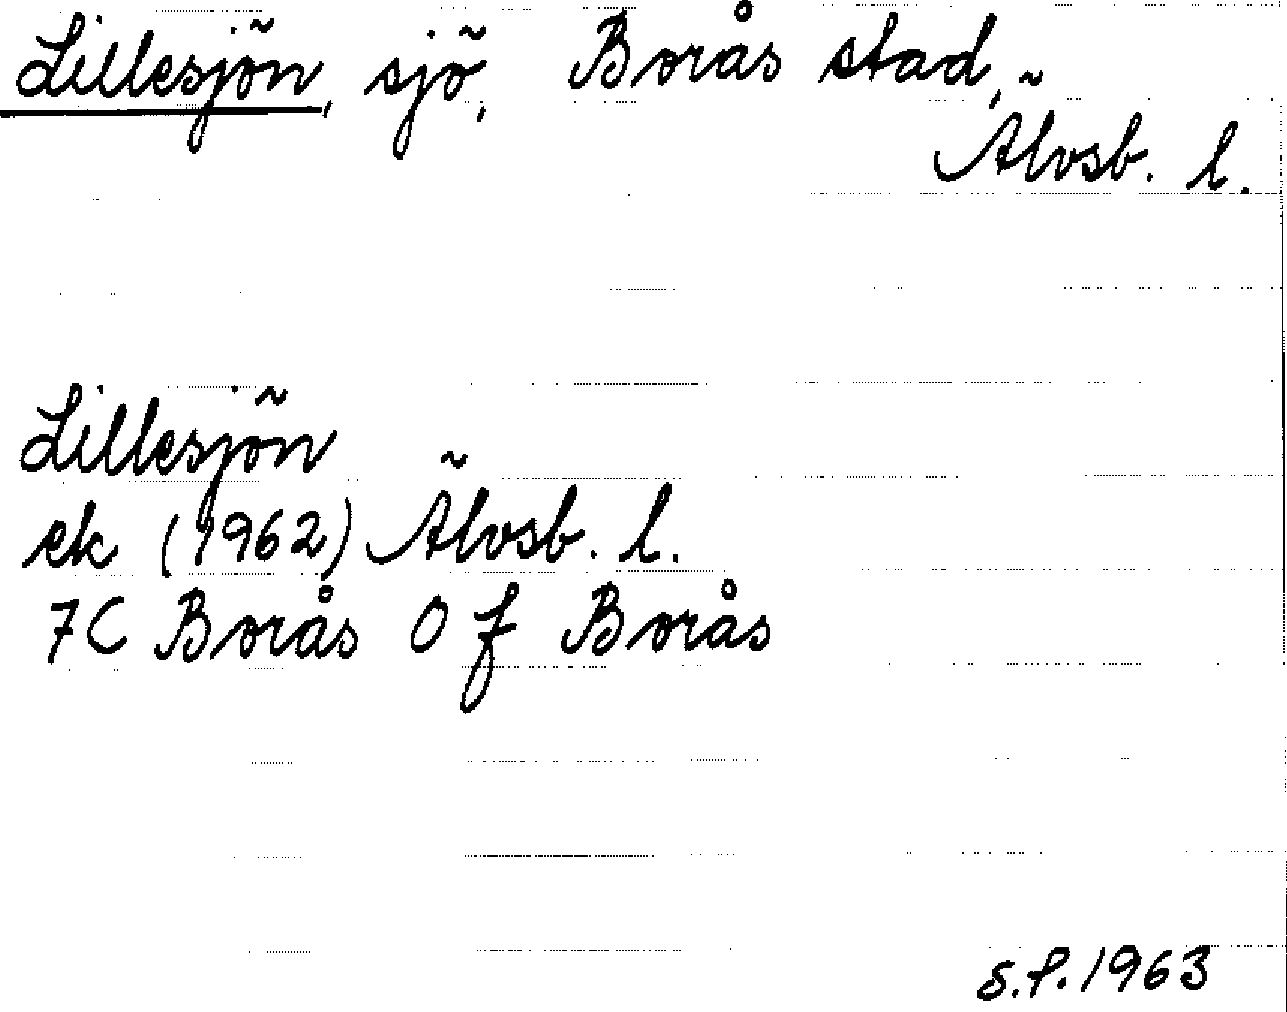 Lillesjön, sjö, Borås stad,
Älvsb. l.
Lillesjön
ek (1962) Älvsb. l.
7C Borås 0 f Borås
S.P. 1963